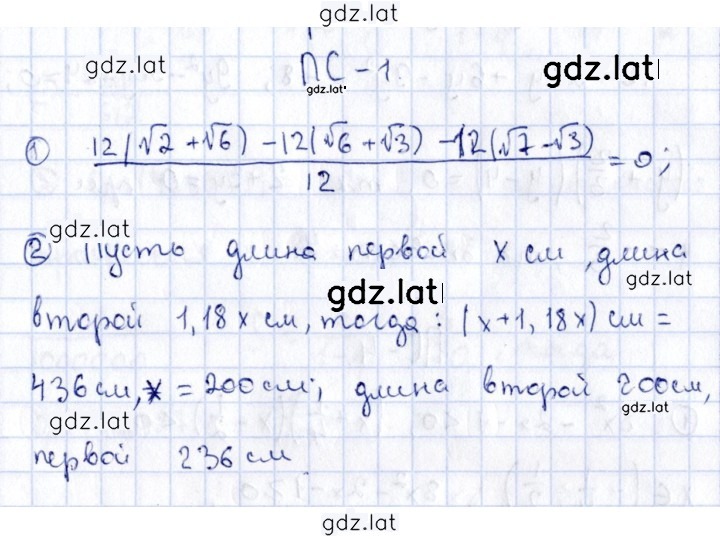 gdz.lat
gdz.lat ПС - 1. gdz.lat
gdz.lat
① 12(√2 + √6) - 12(√6 + √3) - 12(√7 - √3)
12
= 0;
gdz.lat
② Пусть длина первой x см, длина
gdz.lat
gdz.lat
второй 1,18x см, тогда: (x+1,18x) см =
436 см, x = 200 см; длина второй 200см,
gdz.lat gdz.lat
первой 236 см
gdz.lat